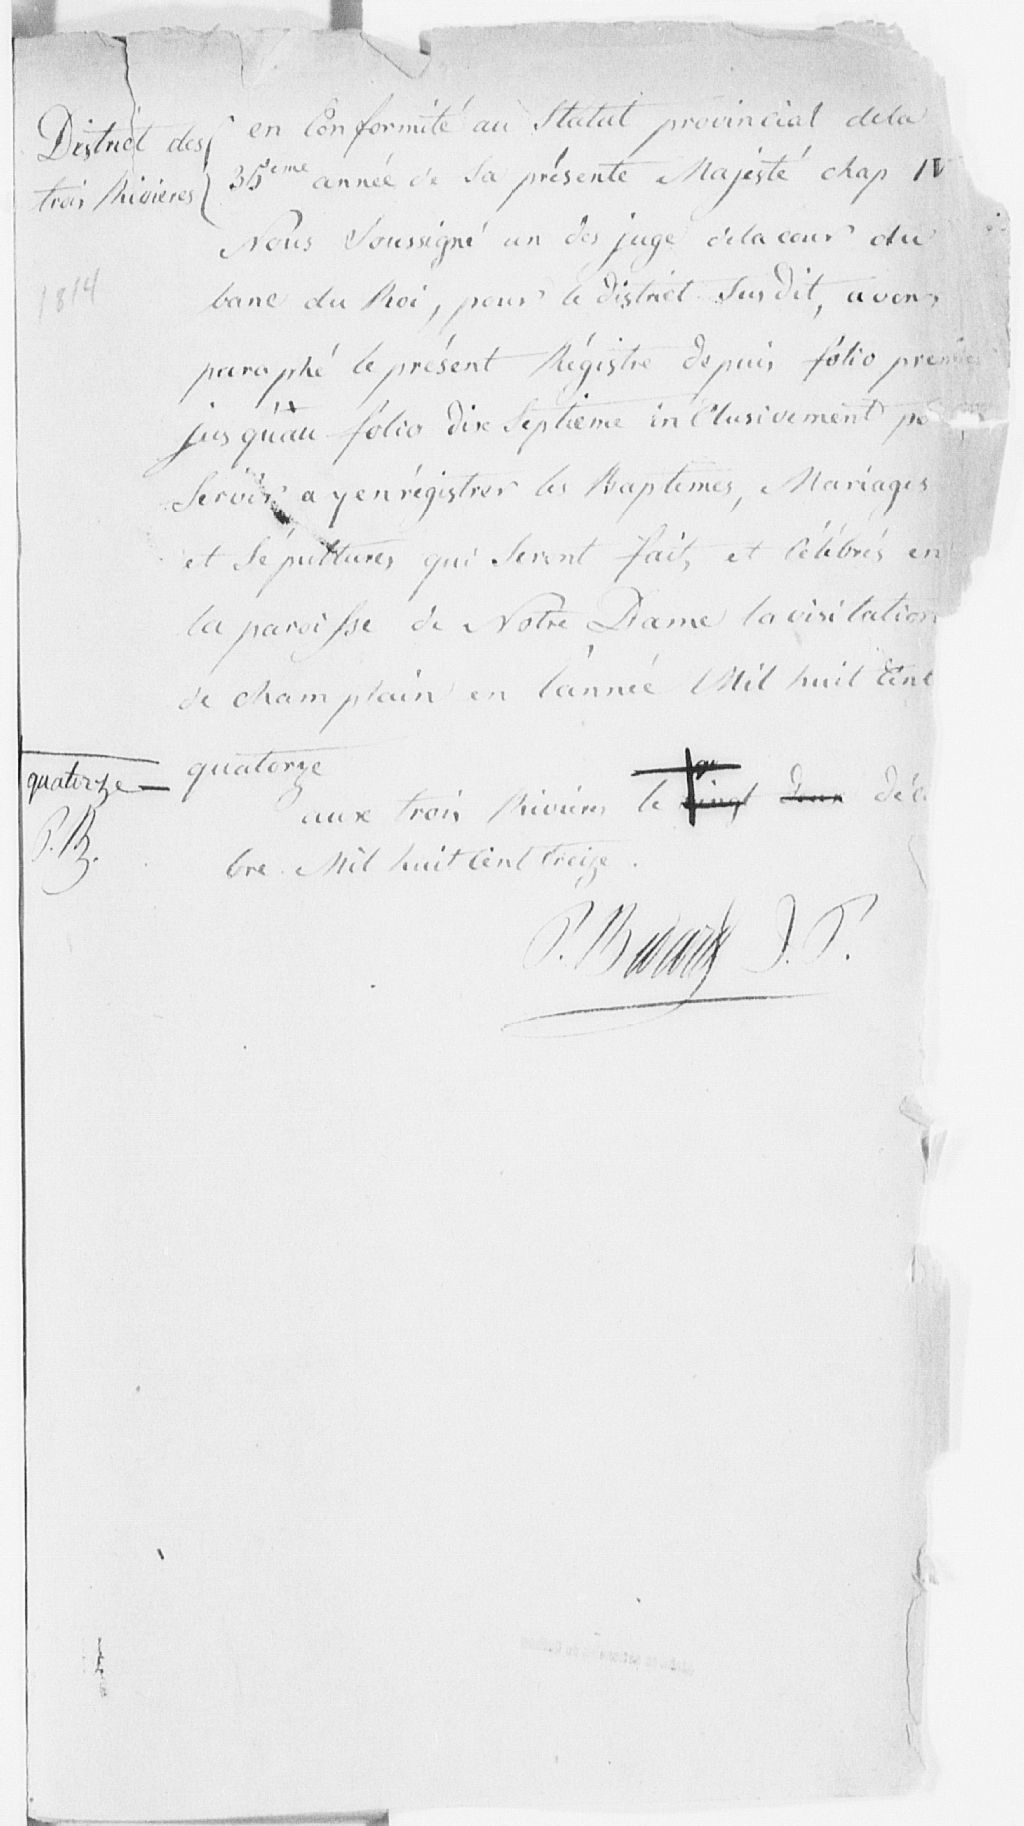 District des
trois Rivieres
en Conformité au Statut provincial dela
35eme année de Sa présente Majésté chap IV
Nous Soussigné un des juge dela cour du
banc du Roi, pour le District Susdit, avons
paraphé le présent Régistre depuis folio premier
jusquau folio dix Septieme inclusivement
Servir a y enrégistrer les Baptemes, Mariages
et Sépultures qui Seront fait, et Célébrés en
la paroisse de Notre Dame la visitation
de champlain en l'année Mil huit Cent
quatorze
aux trois Rivieres le vingt deux
bre Mil huit Cent treize.
1814
quatorze
P.B.
P. Bedard J. P.